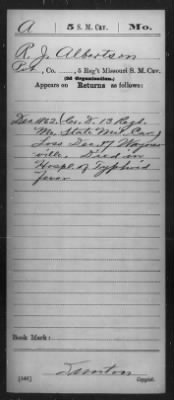 A 5 S. M. Cav. Mo.
R. J. Albertson
Pvt, Co. ......, 5 Reg't Missouri S. M. Cav.
(Old Organization.)
Appears on
Returns as follows:
Dec 1862 (Co. D. 13 Regt.
Mo. State Mil. Cav.)
Loss Dec 17 Waynes-
ville. Died in
Hospl. of Typhoid
fever
Book Mark:
(546) Copyist.